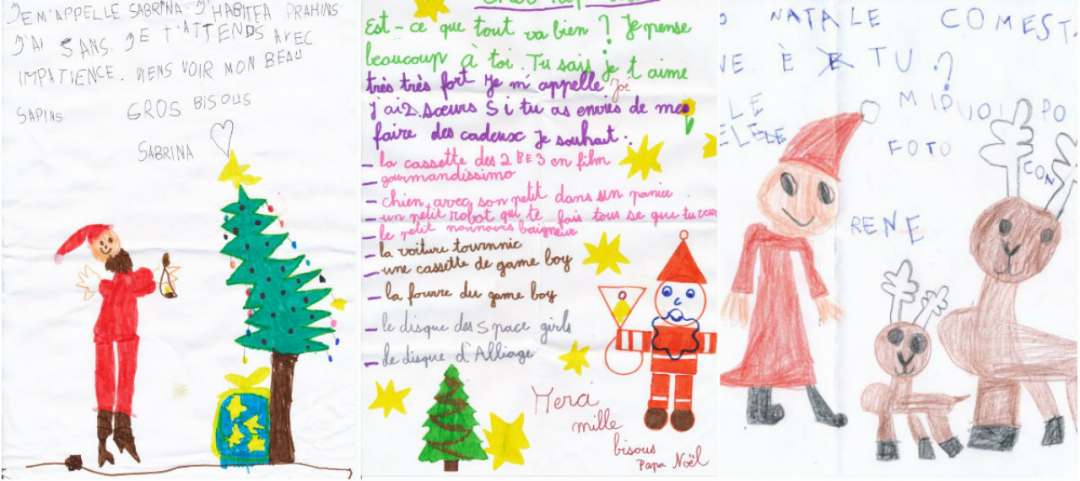 JE M'APPELLE SABRINA J'HABITE A PRAHINS
J'AI 5 ANS. JE T'ATTENDS AVEC
IMPATIENCE. VIENS VOIR MON BEAU
SAPIN
GROS BISOUS
SABRINA
Est-ce que tout va bien ? Je pense
beaucoup à toi. Tu sais je t aime
très très fort Je m'appelle Joe
j'ai 2 sœurs Si tu as envies de mes
faire des cadeux Je souhait.
- la cassette des 2 BE 3 en film
- gourmandissimo
- chien avec son petit dans un panier
- un petit robot qui te fais tous se que tu
- le petit nounours baigneur
- la voiture
- une cassette de game boy
- la du game boy
- le disque des Space girls
- de disque d'Alliage
Merci
mille
bisous
Papa Noël
NATALE COMEST
È TU ?
LE
MI PO
FOTO
CON
RENE